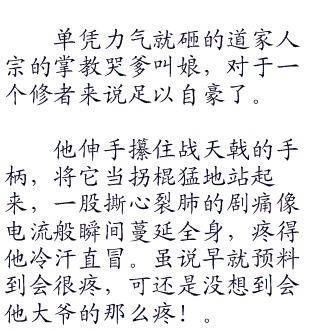 单凭力气就砸的道家人
宗的掌教哭爹叫娘，对于一
个修者来说足以自豪了。
他伸手攥住战天戟的手
柄，将它当拐棍猛地站起
来，一股撕心裂肺的剧痛像
电流般瞬间蔓延全身，疼得
他冷汗直冒。虽说早就预料
到会很疼，可还是没想到会
他大爷的那么疼！。